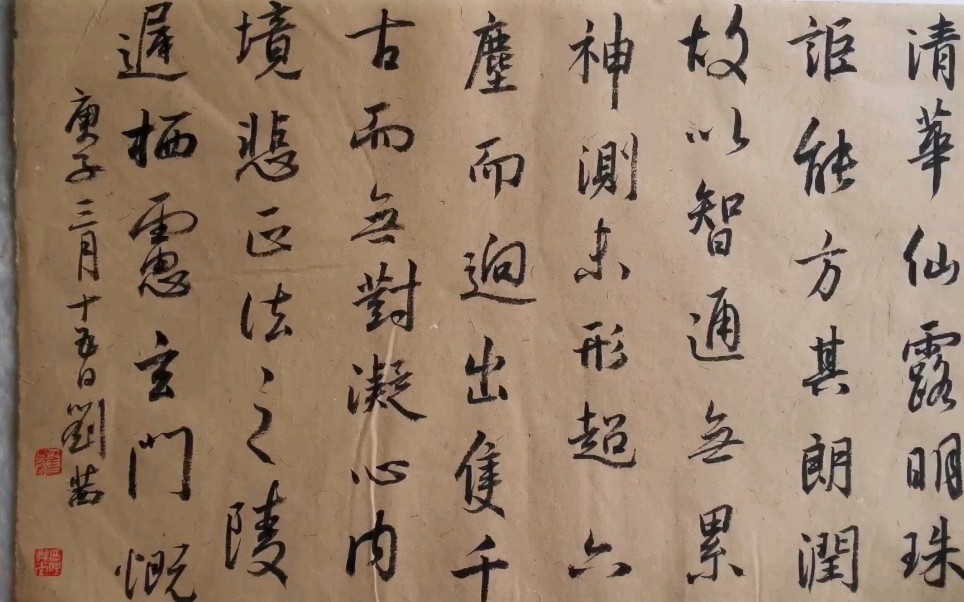 清華仙露明珠
詎能方其朗潤
故以智通無累
神測未形超六
塵而迥出隻千
古而無對凝心內
境悲正法之陵
遲栖慮玄門慨
庚子三月十五日劉